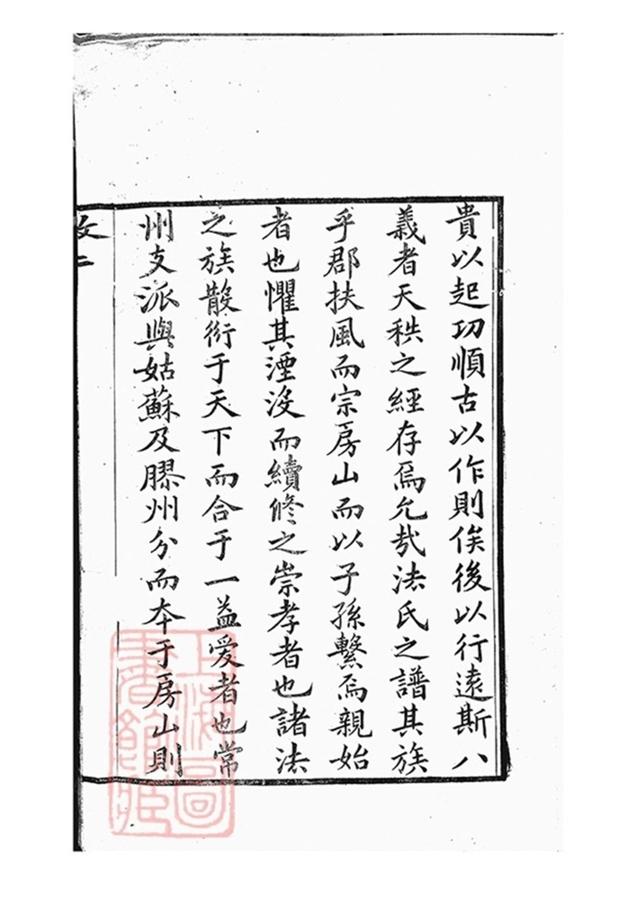 貴以起功順古以作則俟後以行遠斯八
義者天秩之經存焉允㢤法氏之譜其族
乎郡扶風而宗房山而以子孫繫焉親始
者也懼其湮沒而續修之崇孝者也諸法
之族散衍于天下而合于一益愛者也常
州支派與姑蘇及膠州分而夲于房山則
文二
上海圖書館藏